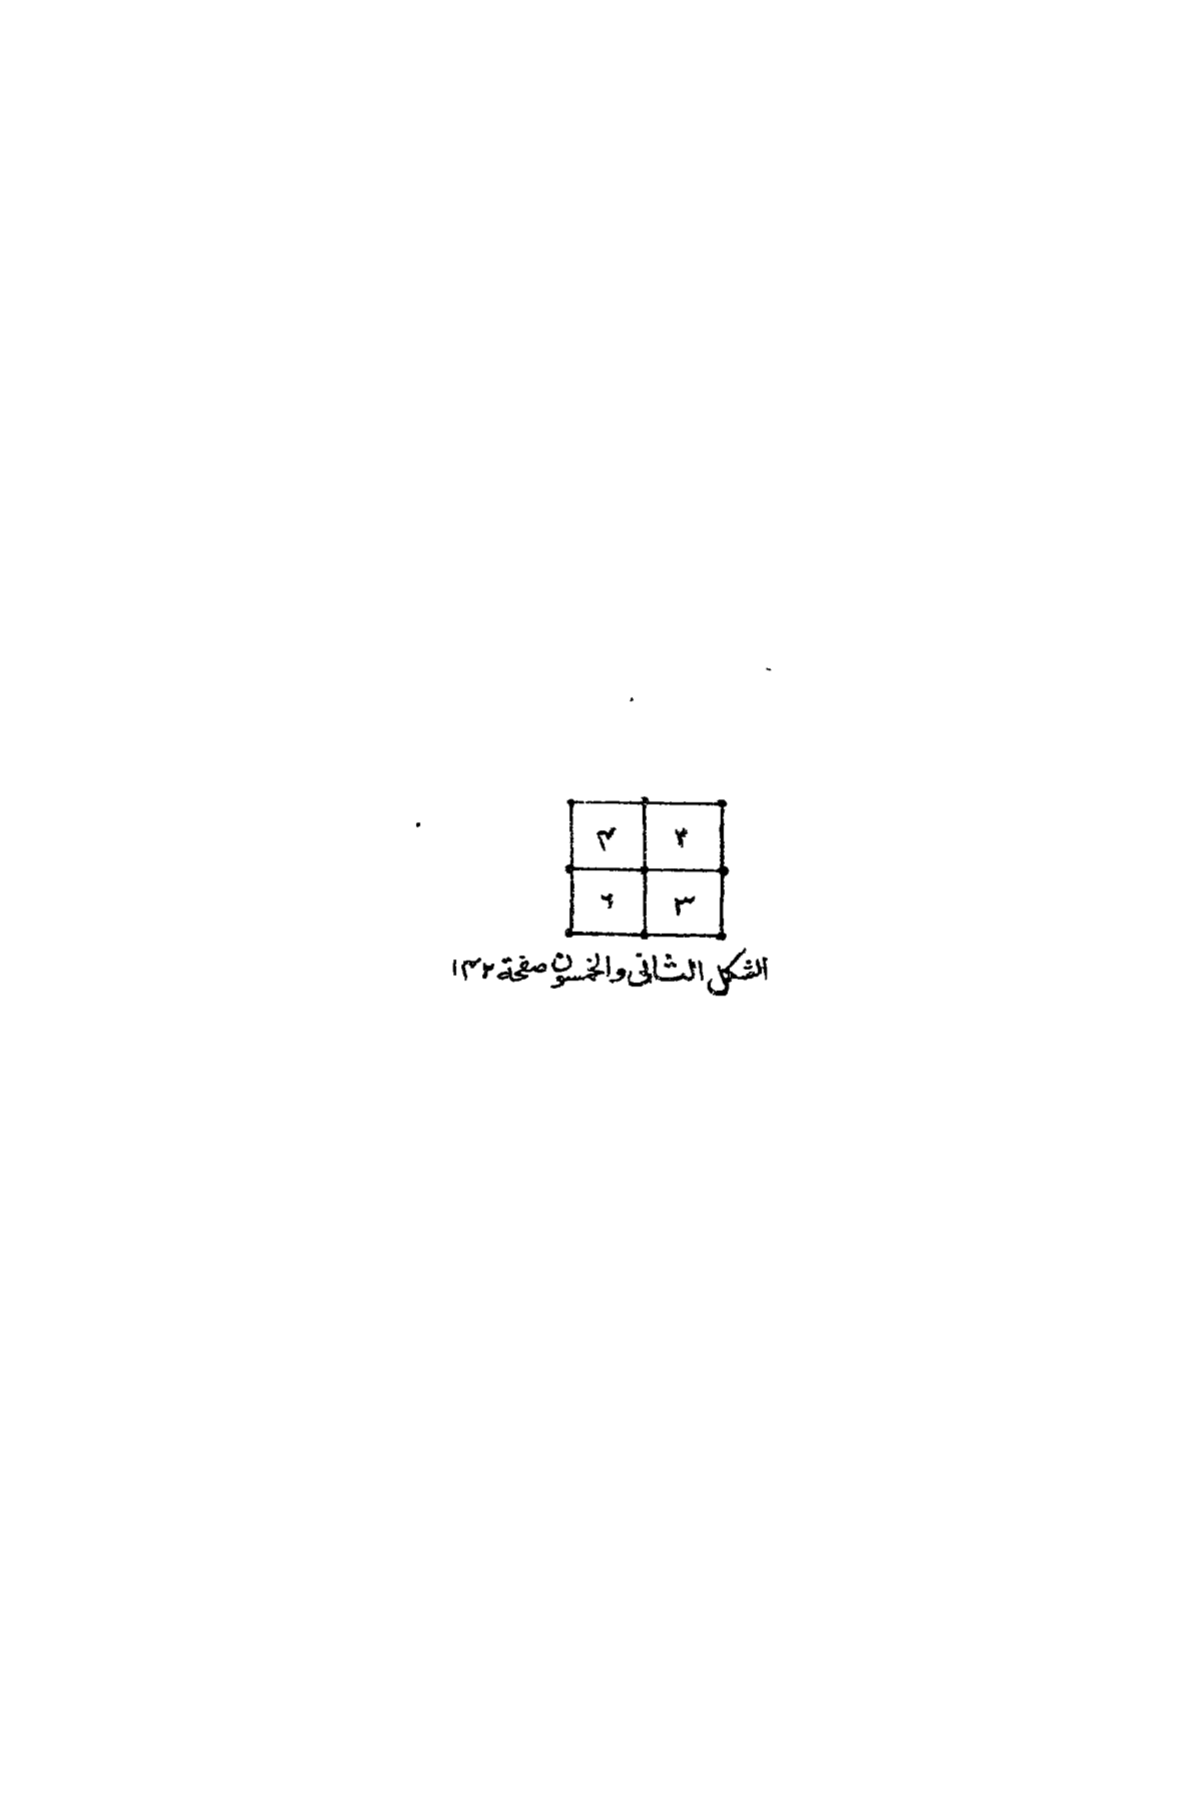 ٢ ۴
٣ ٦
الشكل الثانى والخمسون صفحة ١۴٢